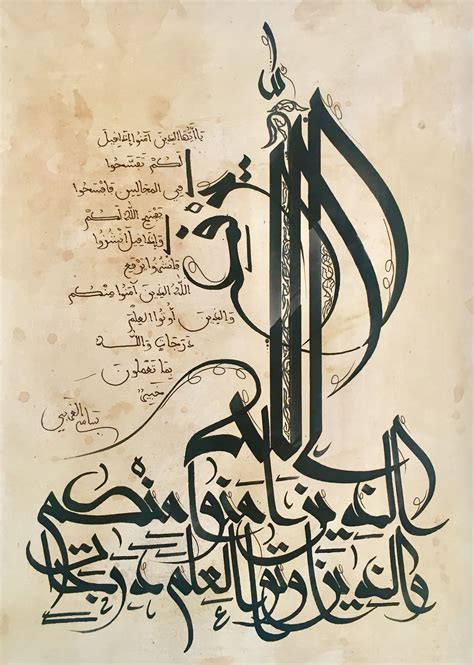 يا أيها الذين آمنوا إذا قيل
لكم تفسحوا
في المجالس فافسحوا
يفسح الله لكم
وإذا قيل انشزوا
فانشزوا يرفع
الله الذين آمنوا منكم
والذين أوتوا العلم
درجات والله
بما تعملون
خبير
يرفع
الله
الذين ءامنوا منكم
والذين أوتوا العلم درجات